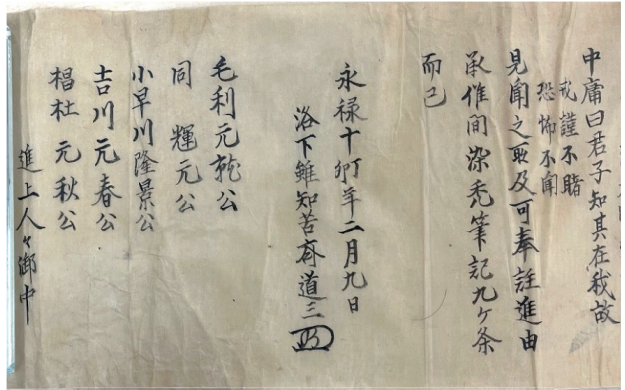 中庸曰君子知其在我故
戒謹不睹
恐怖不聞
見聞之所及可奉註進由
承惟間染禿筆記九ケ条
而已
永禄十卯年二月九日
洛下雖知苦斎道三
毛利元就公
同 輝元公
小早川隆景公
吉川元春公
椙杜 元秋公
進上人々御中